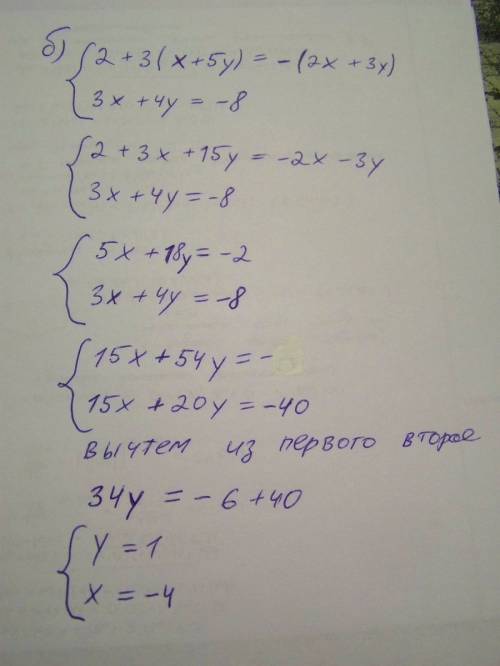 б) 2 + 3(x + 5y) = -(2x + 3y)
3x + 4y = -8
2 + 3x + 15y = -2x - 3y
3x + 4y = -8
5x + 18y = -2
3x + 4y = -8
15x + 54y = -
15x + 20y = -40
вычтем из первого второе
34y = - 6 + 40
y = 1
x = -4